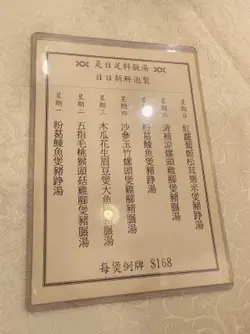 是日足料靚湯
日日新鮮泡製
星期一 粉葛鯪魚煲豬踭湯
星期二 五指毛桃猴頭菇雞腳煲豬腸湯
星期三 木瓜花生眉豆煲大魚
星期四 沙參玉竹螺頭煲雞腳豬腸湯
粉葛鯪魚煲豬踭湯
六 清補涼螺頭雞腳煲豬腸湯
星期日 紅蘿蔔姬松茸粟米煲豬踭湯
每煲例牌 $168